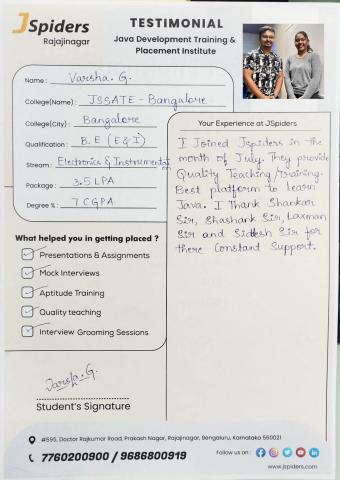 JSpiders
Rajajinagar
TESTIMONIAL
Java Development Training &
Placement Institute
Name : Varsha. G.
College(Name) : JSSATE - Bangalore
College(City) : Bangalore
Qualification : B.E (E & I)
Stream : Electronics & Instrumentation
Package : 3.5 LPA
Degree % : 7 CGPA
Your Experience at JSpiders
I Joined Jspiders in the
month of July. They provide
Quality Teaching/Training.
Best platform to learn
Java. I Thank Shankar
Sir, Shashank Sir, Laxman
Sir and Sidesh Sir for
there Constant Support.
What helped you in getting placed ?
Presentations & Assignments
Mock Interviews
Aptitude Training
Quality teaching
Interview Grooming Sessions
Varsha. G.
Student's Signature
#595, Doctor Rajkumar Road, Prakash Nagar, Rajajinagar, Bengaluru, Karnataka 560021
7760200900 / 9686800919
Follow us on :
www.jspiders.com